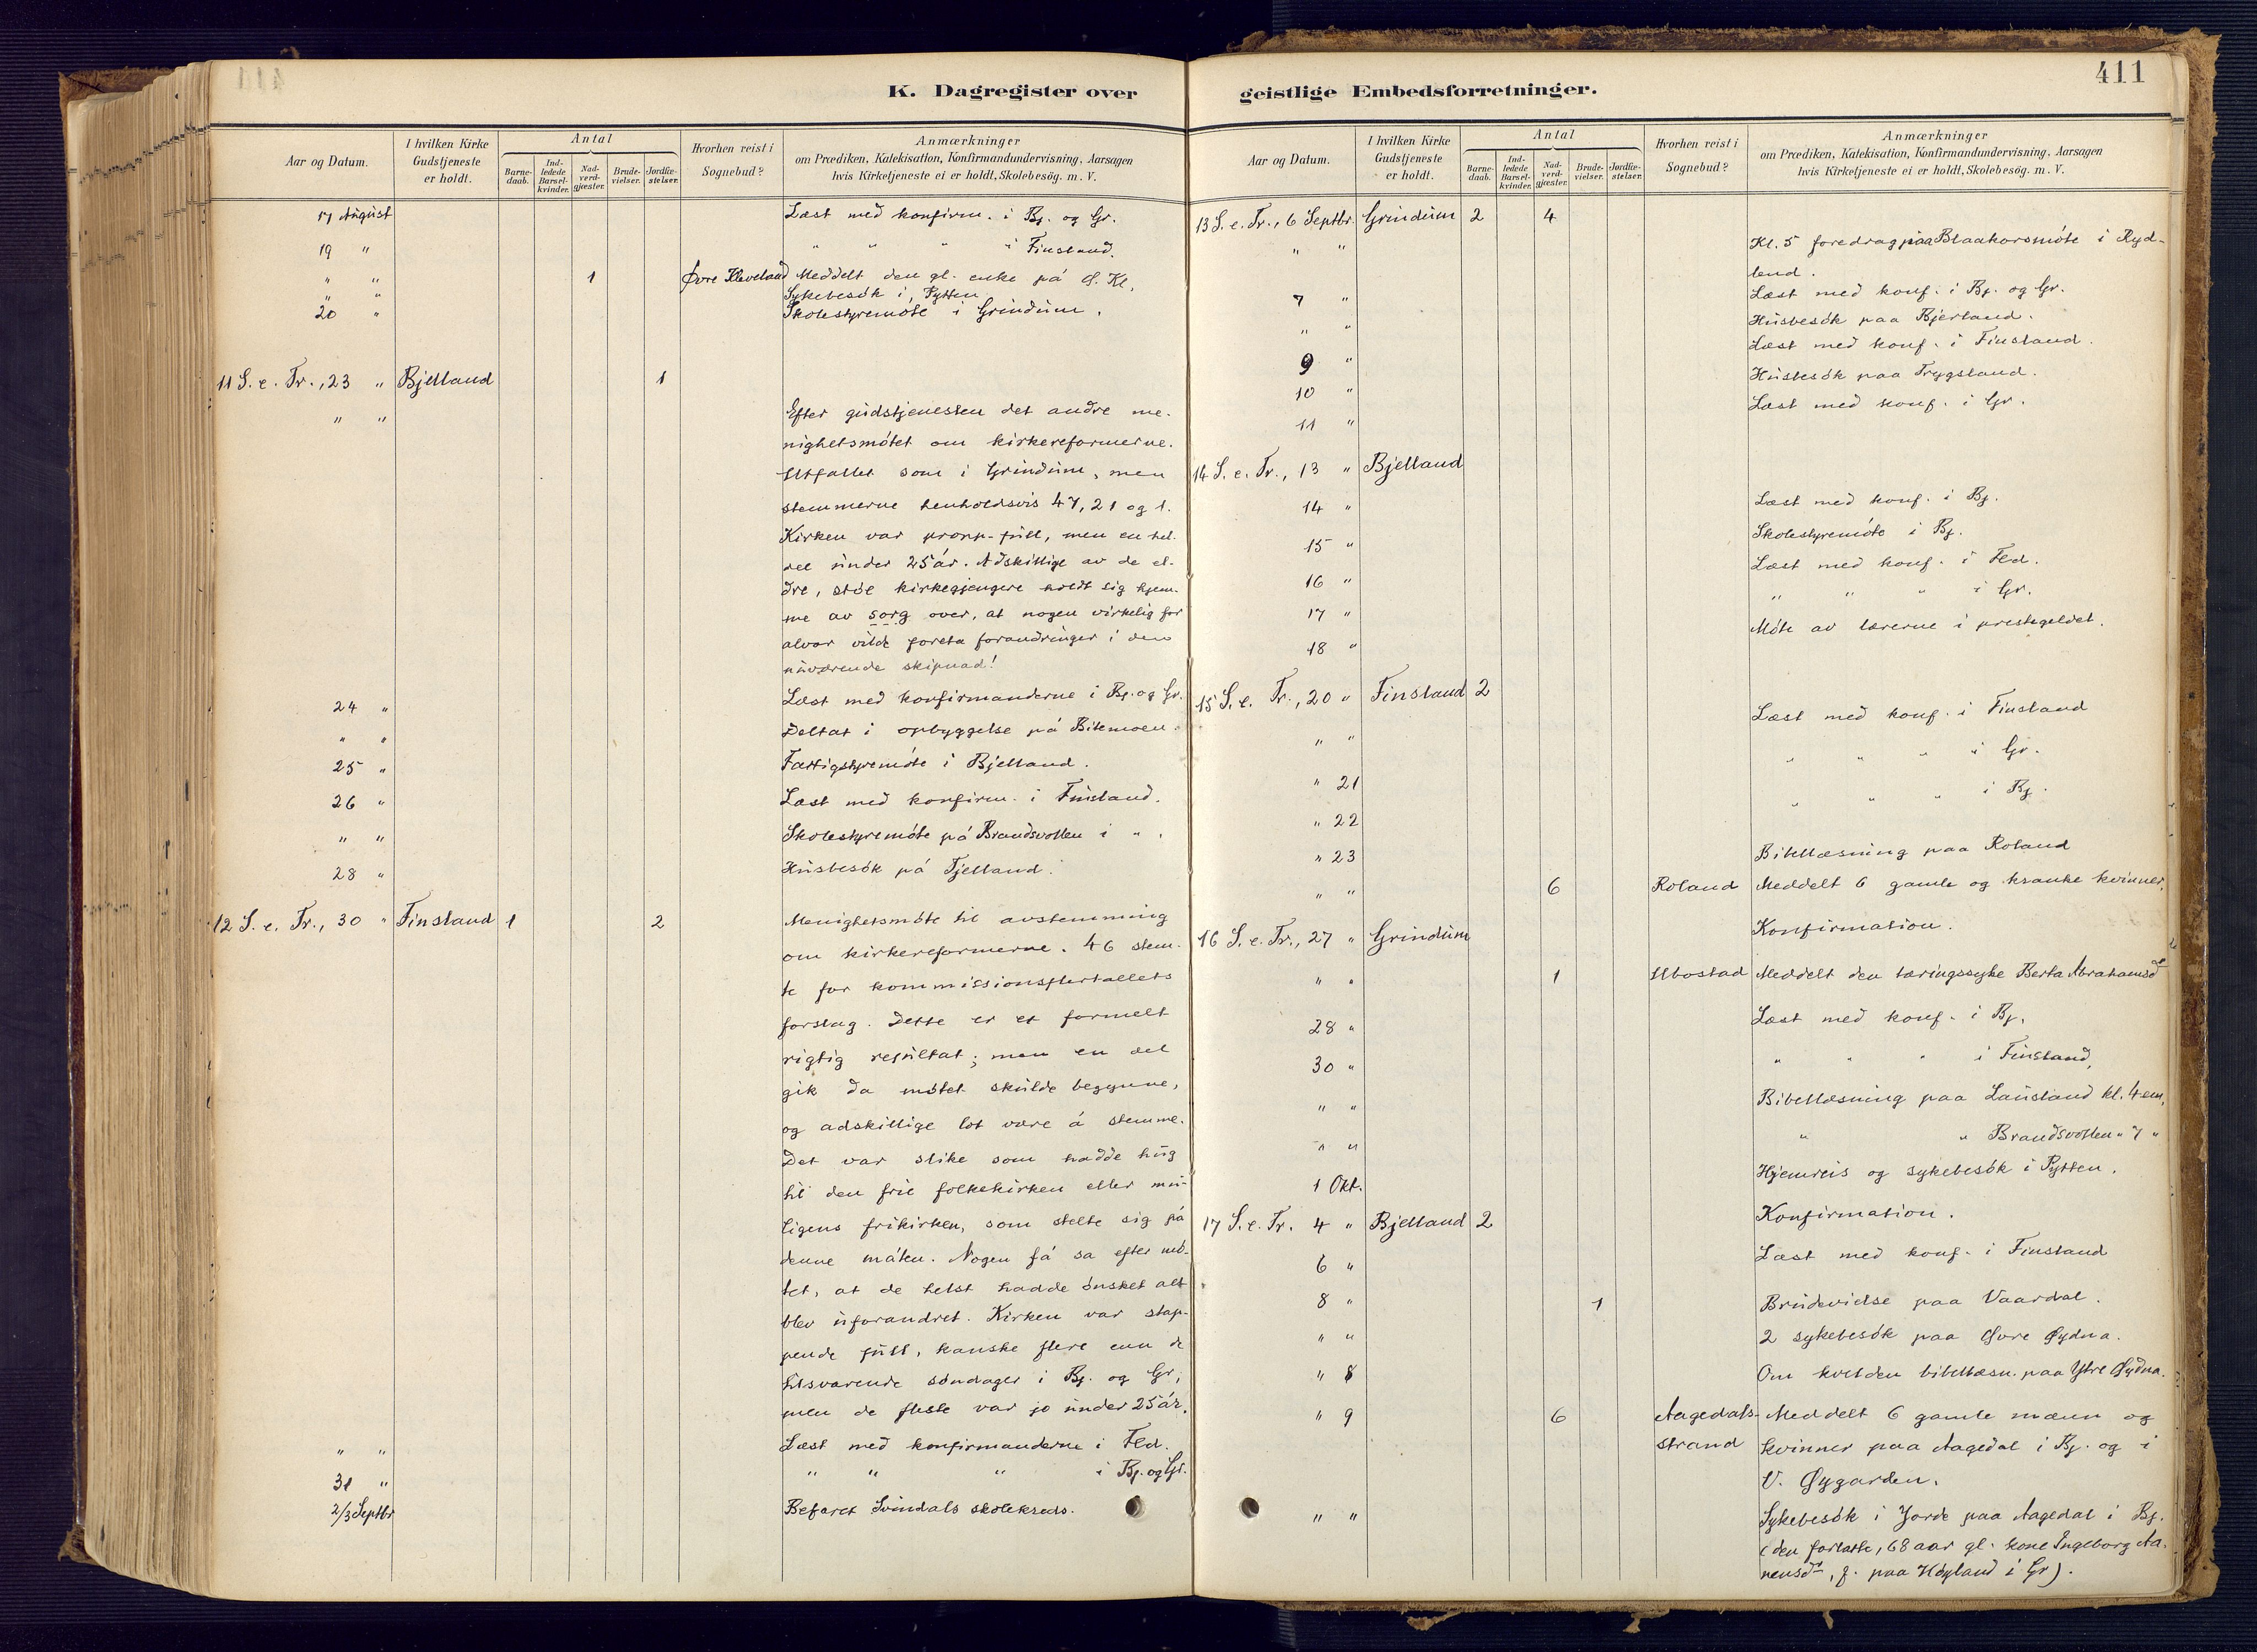 411
K. Dagregister over geistlige Embedsforretninger.
Aar og Datum.
I hvilken Kirke Gudstjeneste er holdt.
Antal
Barne-daab.
Ind-ledede Barsel-kvinder.
Nad-verd-gjæster.
Brude-vielser.
Jordfæ-stelser.
Hvorhen reist i Sognebud?
Anmærkninger
om Prædiken, Katekisation, Konfirmandundervisning, Aarsagen
hvis Kirketjeneste ei er holdt, Skolebesøg. m. V.
17 August Læst med konfirm. i Bj. og Gr.
19 " " " " i Finsland.
" " 1 Øvre Kleveland Meddelt den gl. enke på Ø. Kl.
" " Sykebesøk i Pytten
20 " Skolestyremøte i Grindum.
11 S. e. Tr., 23 " Bjelland 1
" " Efter gudstjenesten det andre me-
nighetsmøtet om kirkereformerne.
Utfallet som i Grindum, men
stemmerne henholdsvis 47, 21 og 1.
Kirken var propp-full, men en hel
del under 25 år. Adskillige av de el-
dre, støe kirkegjengere holdt sig hjem-
me av sorg over, at nogen virkelig for
alvor vilde foreta forandringer i den
nuværende skipnad!
24 " Læst med konfirmanderne i Bj. og Gr.
" " Deltat i opbyggelse på Bilemoen.
25 " Fattigstyremøte i Bjelland.
26 " Læst med konfirm. i Finsland.
" " Skolestyremøte på Brandsvollen i " .
28 " Husbesøk på Fjelland.
12 S. e. Tr., 30 " Finsland 1 2 Menighetsmøte til avstemming
om kirkereformerne. 46 stem-
te for kommissionsflertallets
forslag. Dette er et formelt
rigtig resultat; men en del
gik da møtet skulde begynne,
og adskillige lot være å stemme.
Det var slike som hadde hug
til den frie folkekirken eller mu-
ligens frikirken, som stelte sig på
denne måten. Nogen få sa efter mø-
tet, at de helst hadde ønsket alt
blev uforandret. Kirken var stap-
pende full, kanske flere enn de
tilsvarende søndager i Bj. og Gr;
men de fleste var jo under 25 år.
" " Læst med konfirmanderne i Fld.
31 " " " " i Bj. og Gr.
2/3 Septbr Befaret Svindals skolekreds.
Aar og Datum.
I hvilken Kirke Gudstjeneste er holdt.
Antal
Barne-daab.
Ind-ledede Barsel-kvinder.
Nad-verd-gjæster.
Brude-vielser.
Jordfæ-stelser.
Hvorhen reist i Sognebud?
Anmærkninger
om Prædiken, Katekisation, Konfirmandundervisning, Aarsagen
hvis Kirketjeneste ei er holdt, Skolebesøg. m. V.
13 S. e. Tr., 6 Septbr. Grindum 2 4
" " Kl. 5 foredrag paa Blaakorsmøte i Ryd-
land.
7 " Læst med konf. i Bj. og Gr.
" " Husbesøk paa Bjerland.
9 " Læst med konf. i Finsland.
10 " Husbesøk paa Trygsland.
11 " Læst med konf. i Gr.
14 S. e. Tr., 13 " Bjelland
14 " Læst med konf. i Bj.
15 " Skolestyremøte i Bj.
16 " Læst med konf. i Fld.
17 " " " " i Gr.
18 " Møte av lærerne i prestegeldet.
15 S. e. Tr., 20 " Finsland 2
" " Læst med konf. i Finsland
" 21 " " " i Gr.
" 22 " " " i Bj.
" 23 Bibellæsning paa Roland
" " 6 Roland Meddelt 6 gamle og kranke kvinner.
16 S. e. Tr., 27 " Grindum Konfirmation.
" " 1 Ubostad Meddelt den tæringssyke Berta Abrahamsd
28 " Læst med konf. i Bj.
30 " " " " i Finsland,
" " Bibellæsning paa Lausland kl. 4 em,
" " " " Brandsvollen " 7 "
1 Okt. Hjemreis og sykebesøk i Pytten.
17 S. e. Tr. 4 " Bjelland 2 Konfirmation.
6 " Læst med konf. i Finsland
8 " 1 Brudevielse paa Vaardal.
" " 2 sykebesøk paa Øvre Øydna.
" 8 Om kvelden bibellæsn. paa Ytre Øydna.
" 9 6 Aagedals-strand Meddelt 6 gamle mænn og
kvinner paa Aagedal i Bj. og i
V. Øygarden.
" " Sykebesøk i Jorde paa Aagedal i Bj.
(den forlatte, 68 aar gl. kone Ingeborg Aa-
nensdr, f. paa Høyland i Gr).